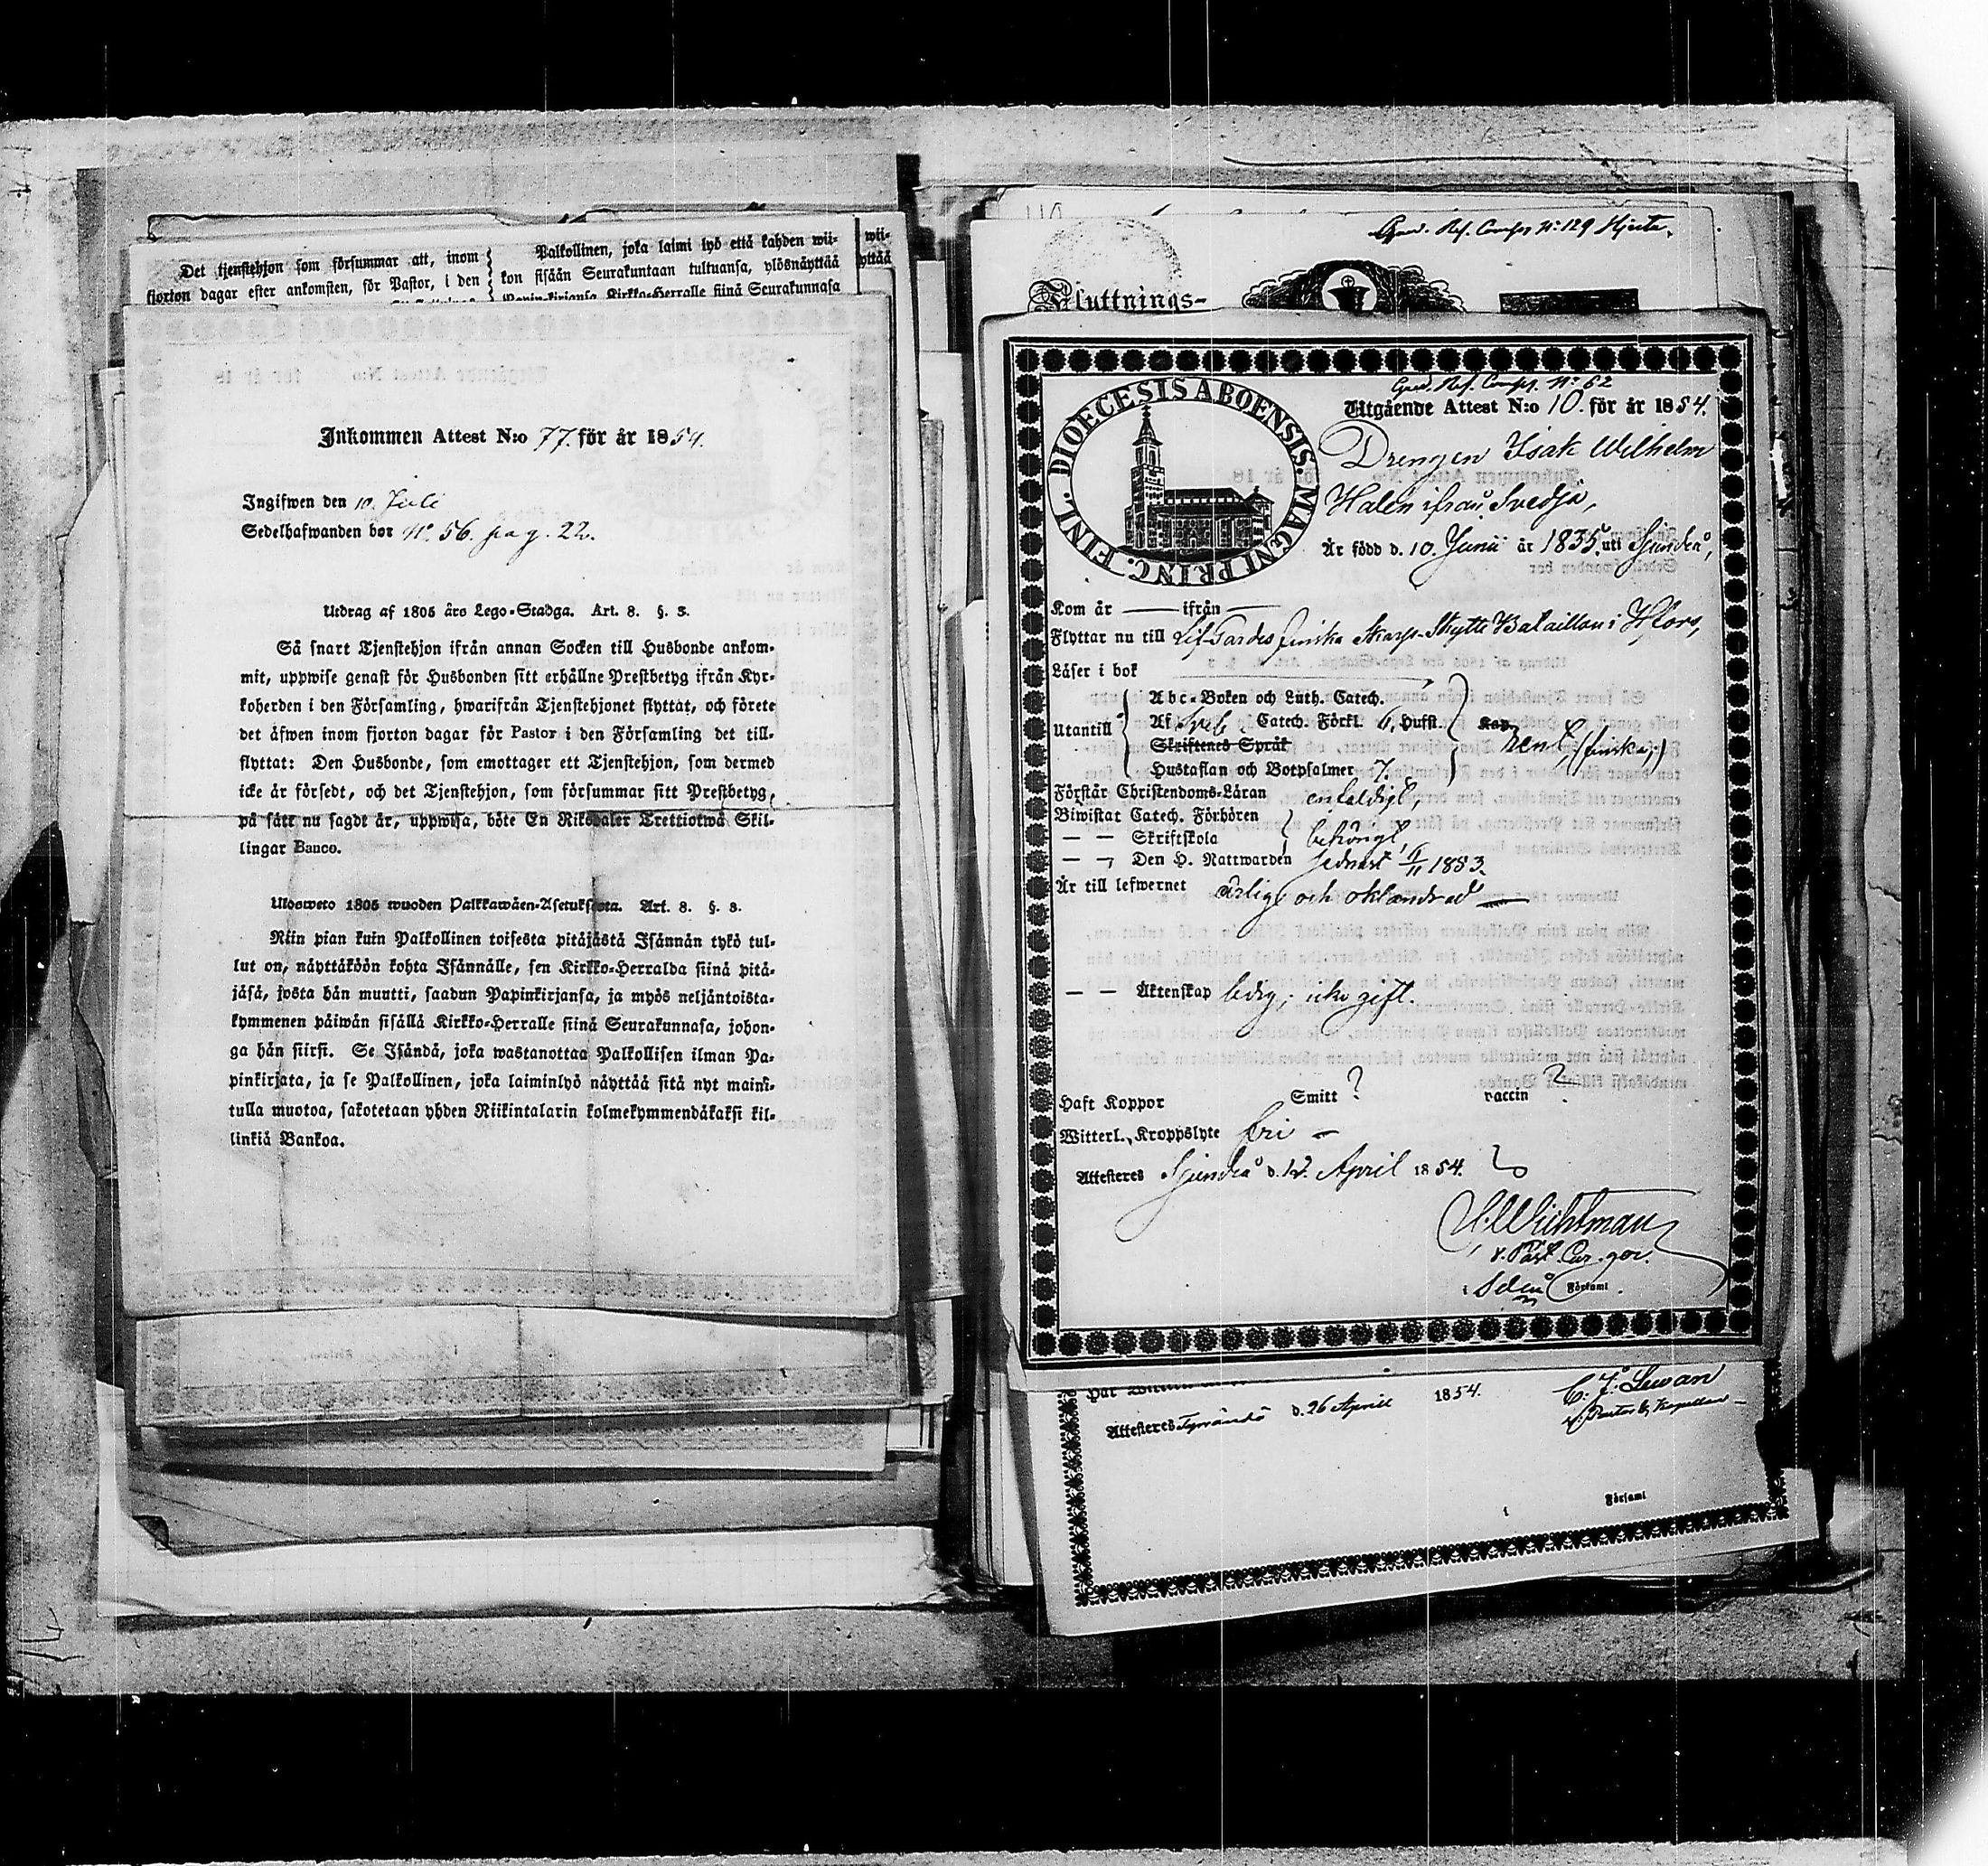 Det tjenstehjon som försummar att, inom
fjorton dagar efter ankomsten, för Pastor, i den
Palkollinen, joka laimi lyö että kahden wii-
kon sisään Seurakuntaan tultuansa, ylösnäyttää
Papin-kirjansa Kirkko-Herralle siinä Seurakunnasa
wii-
yttää
Inkommen Attest N:o 77. för år 1854.
Ingifwen den 10. Juli
Sedelhafwanden bor N:o 56. pag. 22.
Utdrag af 1805 års Lego-Stadga. Art. 8. §. 3.
Så snart Tjenstehjon ifrån annan Socken till Husbonde ankom-
mit, uppwise genast för Husbonden sitt erhållne Prestbetyg ifrån Kyr-
koherden i den Församling, hwarifrån Tjenstehjonet flyttat, och förete
det äfwen inom fjorton dagar för Pastor i den Församling det till-
flyttat: Den Husbonde, som emottager ett Tjenstehjon, som dermed
icke är försedt, och det Tjenstehjon, som försummar sitt Prestbetyg,
på sätt nu sagdt är, uppwisa, böte En Riksdaler Trettiotwå Skil-
lingar Banco.
Ulosweto 1805 wuoden Palkkawäen-Asetuksesta. Art. 8. §. 3.
Niin pian kuin Palkollinen toisesta pitäjästä Isännän tykö tul-
lut on, näyttäköön kohta Isännälle, sen Kirkko-Herralda siinä pitä-
jäsä, josta hän muutti, saadun Papinkirjansa, ja myös neljäntoista-
kymmenen päiwän sisällä Kirkko-Herralle siinä Seurakunnasa, johon-
ga hän siirsi. Se Isändä, joka wastanottaa Palkollisen ilman Pa-
pinkirjata, ja se Palkollinen, joka laiminlyö näyttää sitä nyt maini-
tulla muotoa, sakotetaan yhden Riikintalarin kolmekymmendäkaksi kil-
linkiä Bankoa.
Gren. Ref. Comps N:129 Hjerta,
Fluttnings-
Gren. Ref. Comps. N:o 62
FINL. DIOECESIS ABOENSIS. MAGNI PRINC.
Utgående Attest N:o 10. för år 1854.
Drengen Isak Wilhelm
Halén ifrån Svedja,
Är född d. 10. Junii år 1835. uti Sjundeå,
Kom år — ifrån —
Flyttar nu till Lif-Gardes finska Skarp-Skytte Bataillon i H:fors,
Läser i bok
Utantill
Abc-Boken och Luth. Catech.
Af Catech. Förkl. 6, Hufst.
Skriftenes Språk
Hustaflan och Botpsalmer 7.
Kap.
rent, (finska;)
Förstår Christendoms-Läran enfaldigt,
Biwistat Catech. Förhören
— — Skriftskola behörigt,
— — Den H. Nattwarden sednast 6/11 1853.
Är till lefwernet ärlig och oklandrad —
— — Äktenskap ledig; icke gift.
Haft Koppor Smitt ? vaccin ?
Witterl. Kroppslyte fri —
Attesteres Sjundeå d. 12. April 1854.
Wichtman
v. Past. Cur. ger.
i Sdeå Församl.
Attesteres Tyrvändö d. 26 April 1854.
v: Pastor &
i Församl